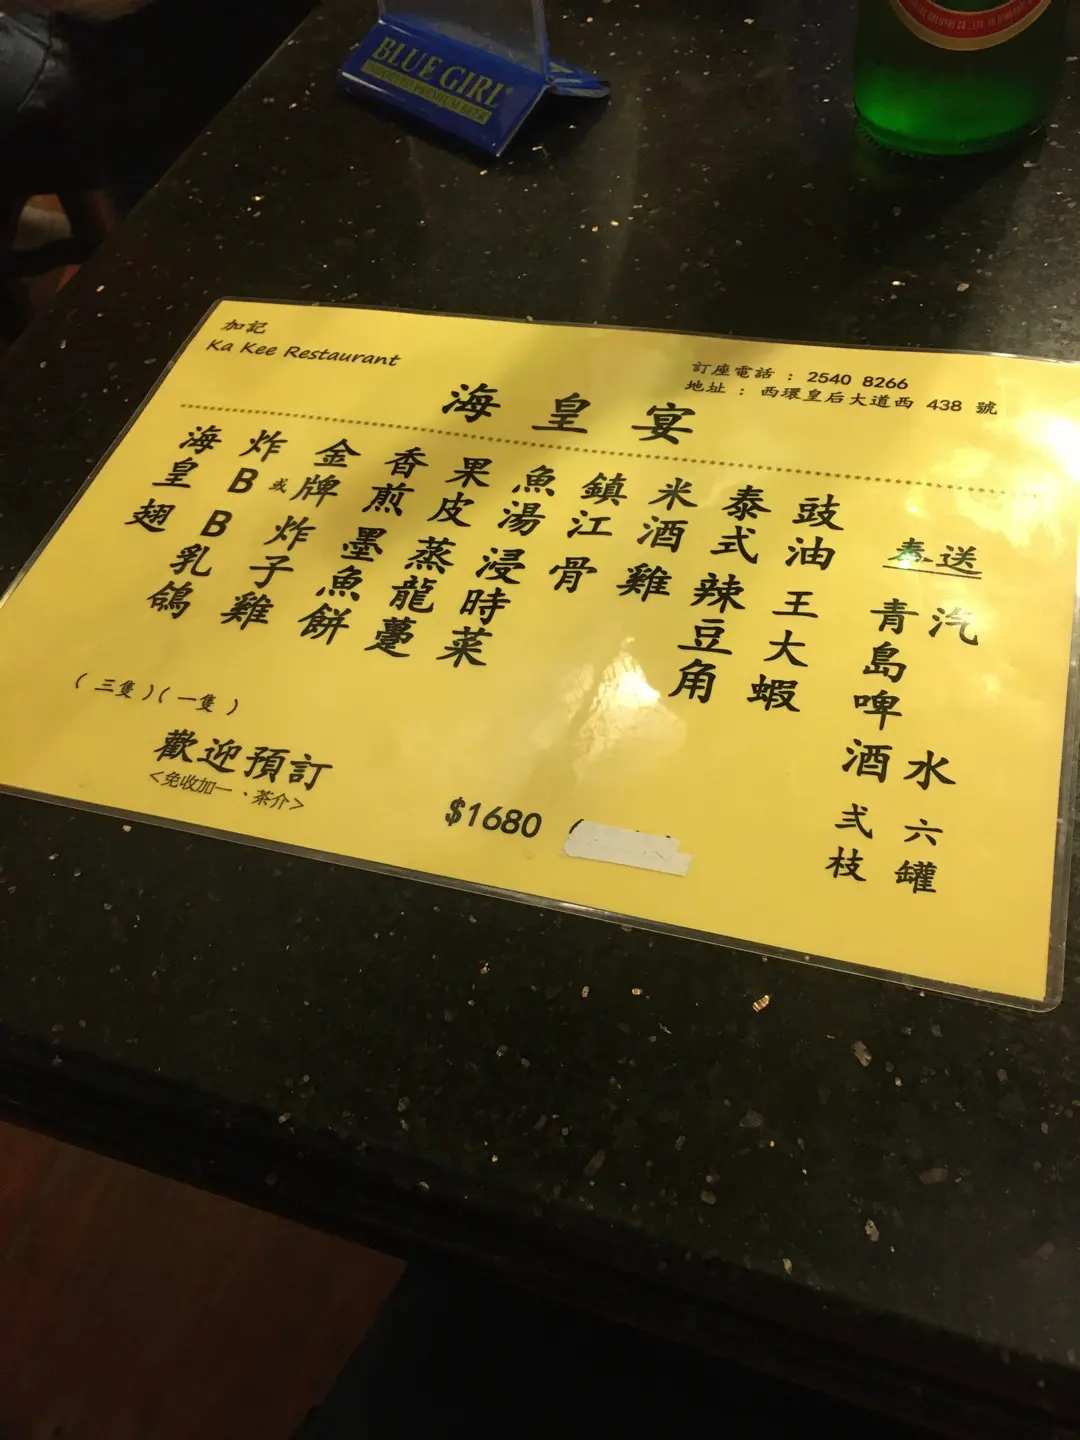 BLUE GIRL
加記
Ka Kee Restaurant
訂座電話 : 2540 8266
地址 : 西環皇后大道西 438 號
海皇宴
豉油王大蝦
泰式辣豆角
米酒雞
鎮江骨
魚湯浸時菜
果皮蒸龍躉
香煎墨魚餅
金牌炸子雞
(一隻)
或
炸BB乳鴿
(三隻)
海皇翅
奉送
汽水六罐
青島啤酒弍枝
歡迎預訂
<免收加一、茶介>
$1680